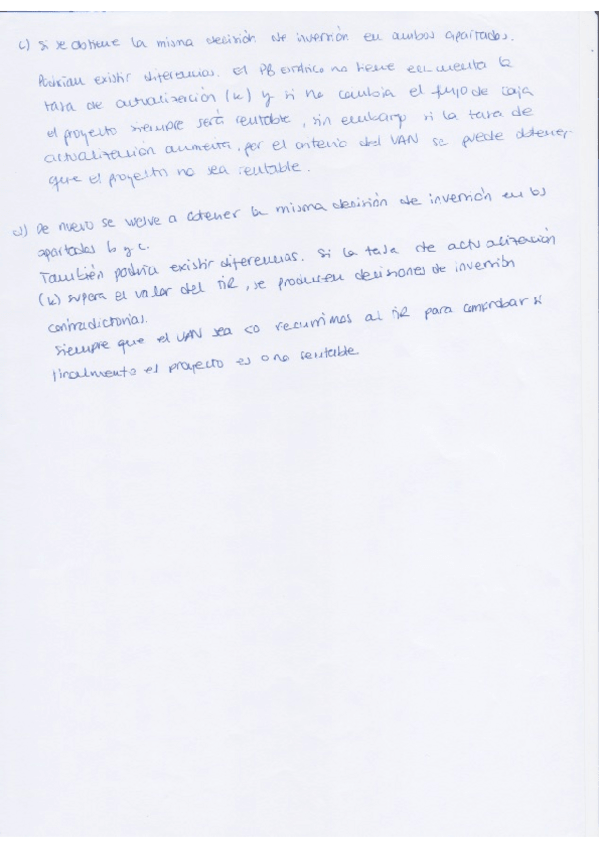 c) Si se obtiene la misma decisión de inversión en ambos apartados.
Podrían existir diferencias. El PB estático no tiene en cuenta la
tasa de actualización (k) y si no cambia el flujo de caja
el proyecto siempre será rentable, sin embargo si la tasa de
actualización aumenta, por el criterio del VAN se puede obtener
que el proyecto no sea rentable.
d) De nuevo se vuelve a obtener la misma decisión de inversión en los
apartados b y c.
También podría existir diferencias. Si la tasa de actualización
(k) supera el valor del TIR, se producen decisiones de inversión
contradictorias.
Siempre que el VAN sea <0 recurrimos al TIR para comprobar si
finalmente el proyecto es o no rentable